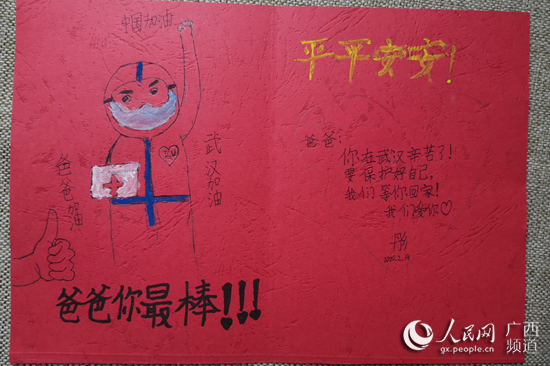 中国加油
武汉加油
爸爸加油
爸爸你最棒!!!
平平安安!
爸爸:
你在武汉辛苦了!
要保护好自己,
我们等你回家!
我们爱你♡
彤
人民网 广西频道
gx.people.cn